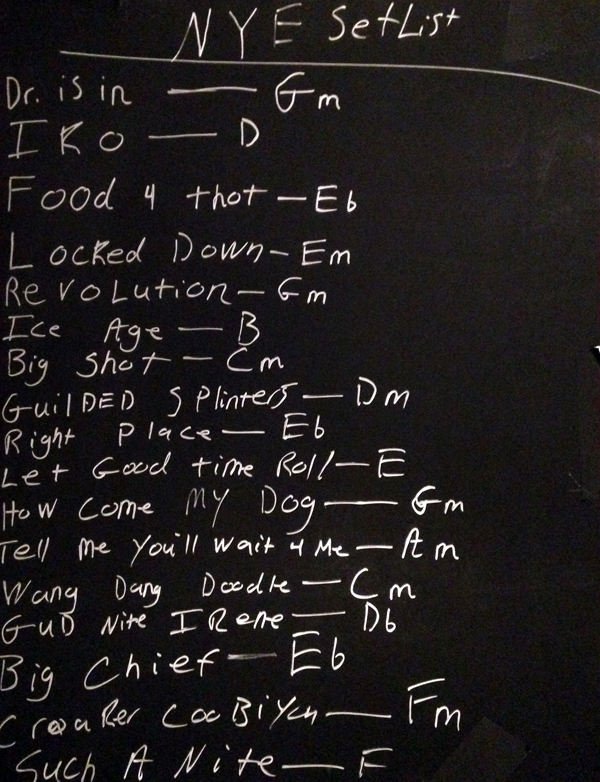 NYE SetList
Dr. is in — Gm
IKO — D
Food 4 thot — Eb
Locked Down — Em
Revolution — Gm
Ice Age — B
Big Shot — Cm
GuilDED SPlinters — Dm
Right Place — Eb
Let Good time Roll — E
How Come MY Dog — Gm
Tell Me You'll Wait 4 Me — Am
Wang Dang Doodle — Cm
GuD Nite IRene — Db
Big Chief — Eb
— Fm
Such A Nite — F